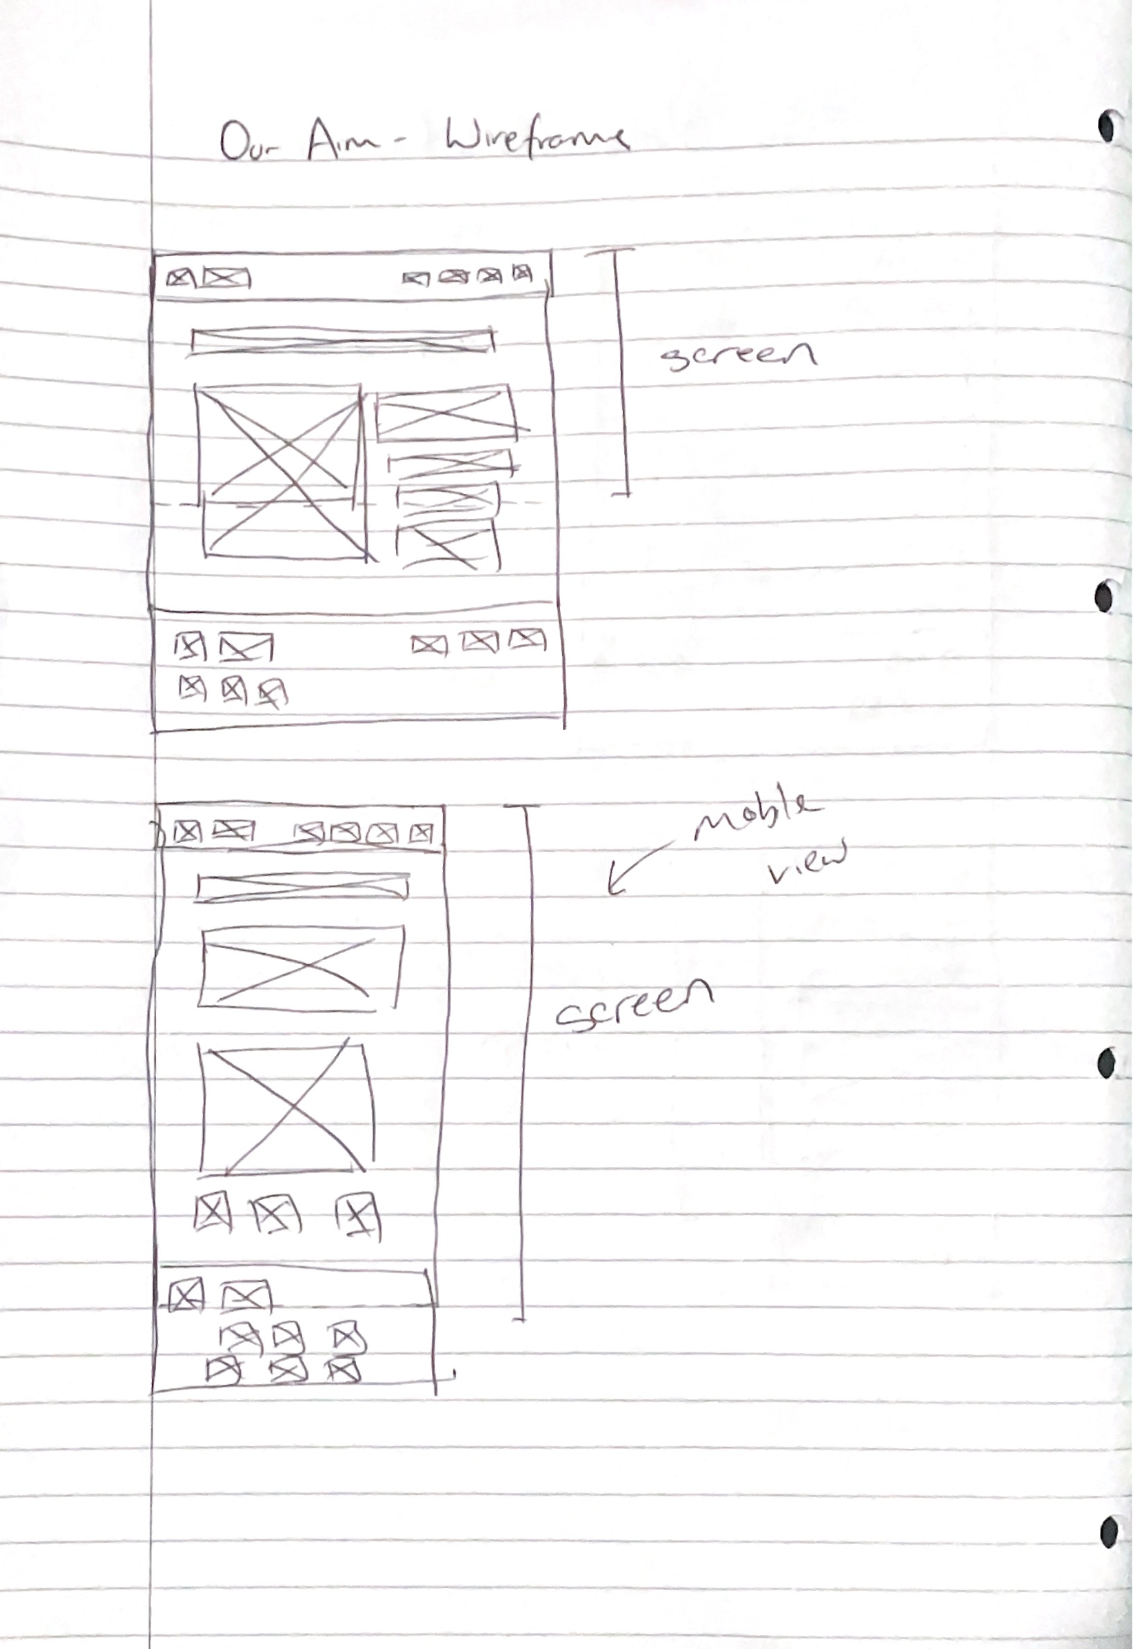 Our Aim - Wireframe
screen
Mobile
view
screen